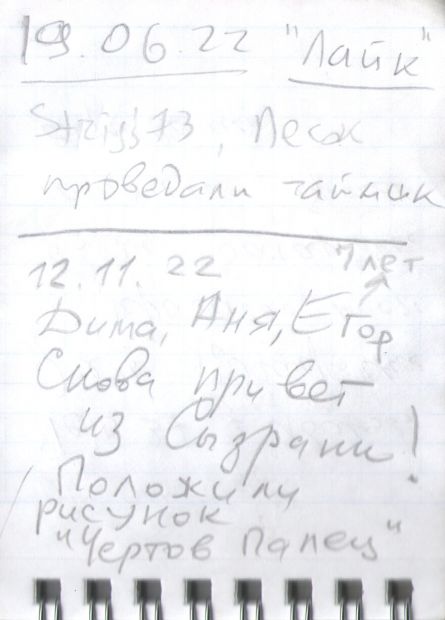 19.06.22 "Лайк"
Strizj73, Песок
проведали тайник
12.11.22 7 лет
Дима, Аня, Егор
Снова привет
из Сызрани!
Положили
рисунок
"Чертов палец"